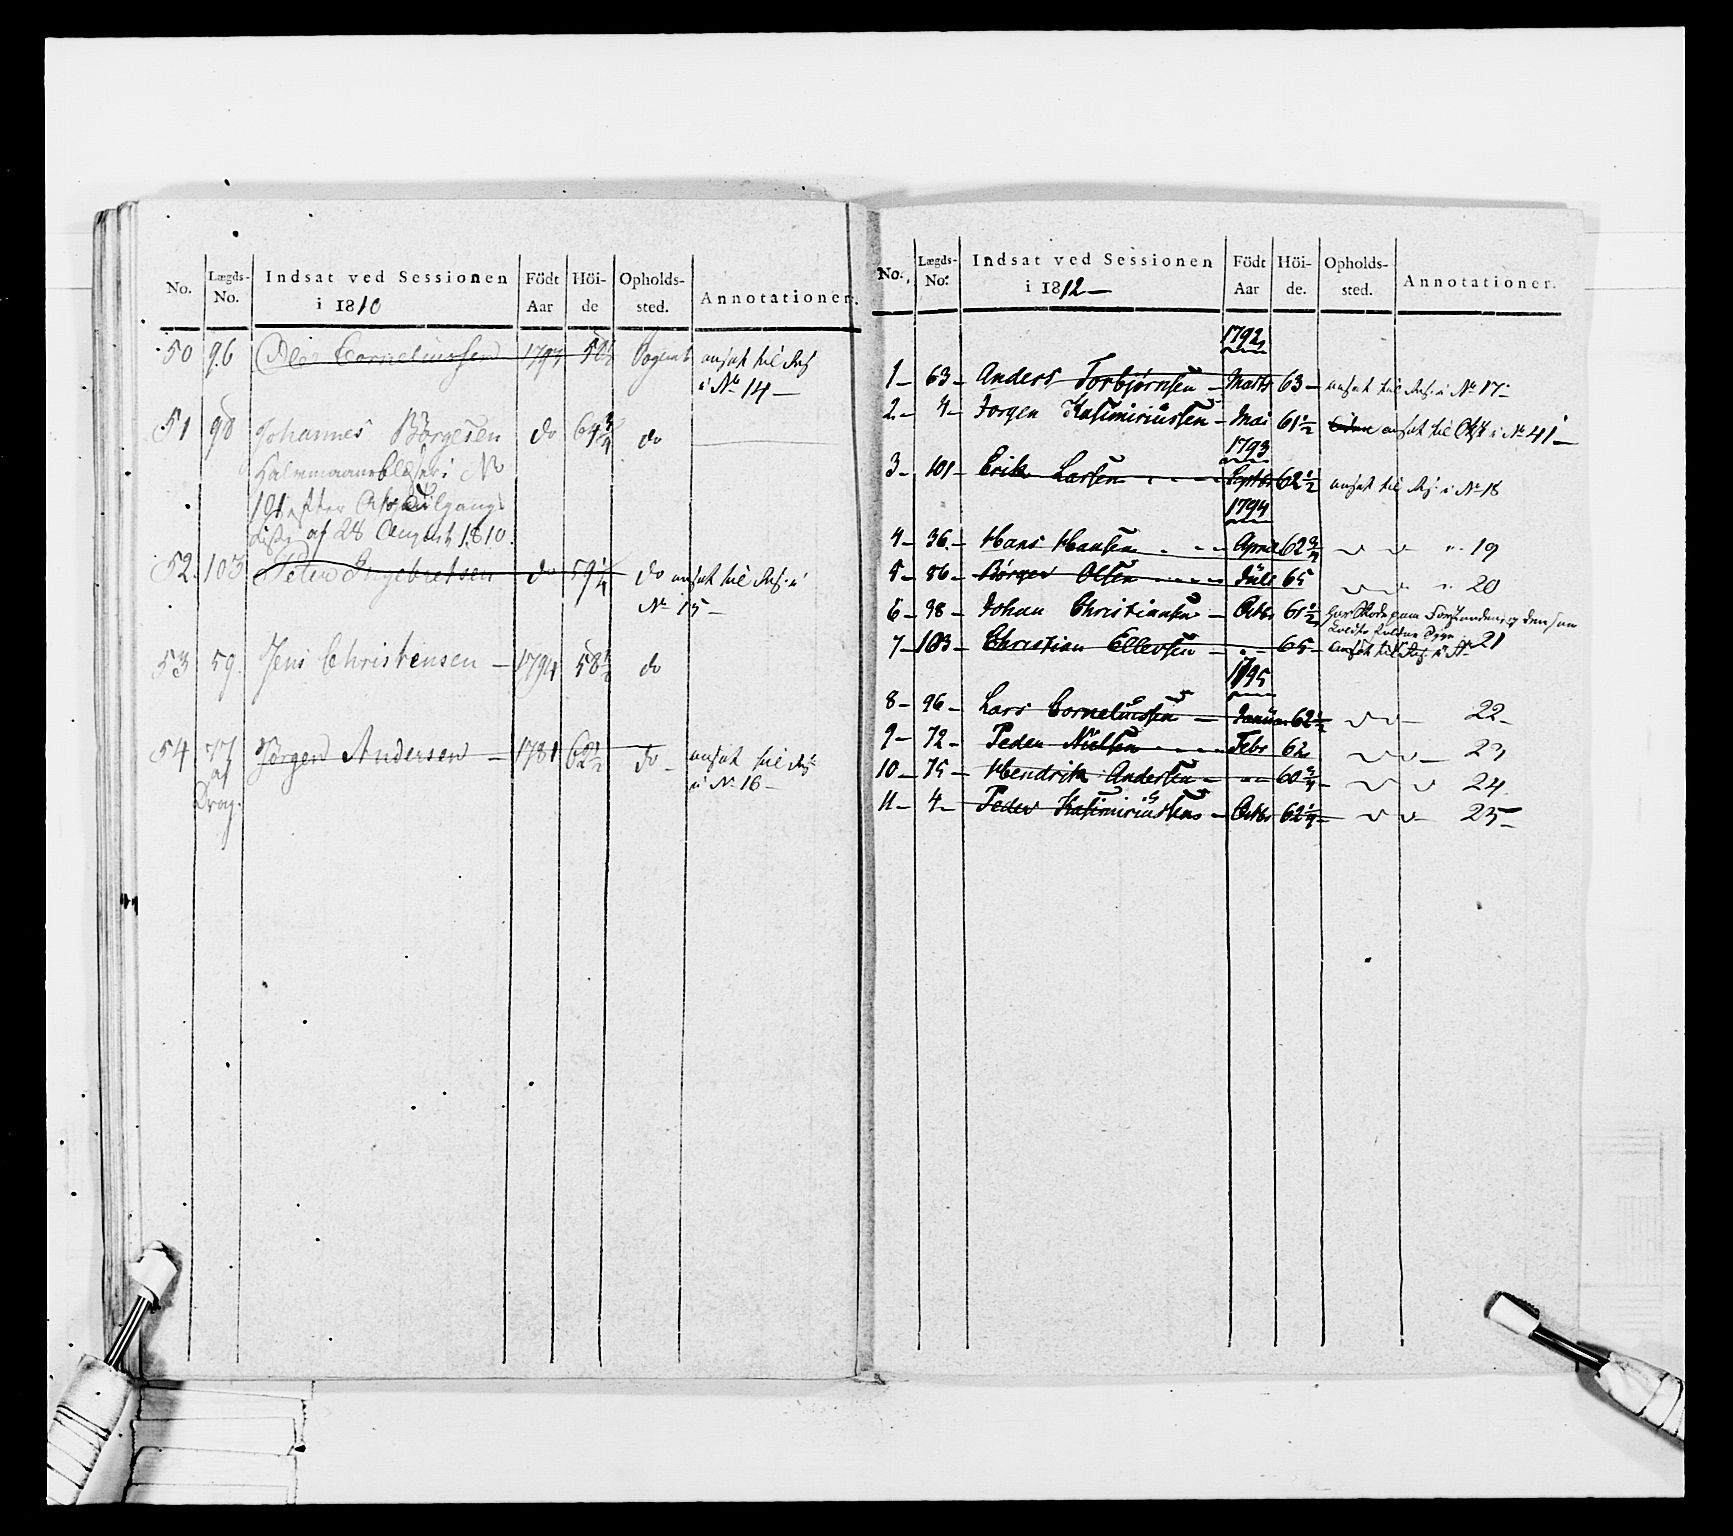 No. Lægds-No. Indsat ved Sessionen i 1810 Födt Aar Höi-de Opholds-sted. Annotationer.
50 96 Ole Corneliussen 1793 Sogent ansat til
i No 14 —
51 98 Johannes Börgesen do 64 3/4 do
Halvmaaneblæser i No
101 efter Afs Tilgangs
Liste af 28 August 1810.
52. 103 Peter Ingebretsen — do 59 1/4 do ansat til i
No 15 —
53 59. Jens Christensen — 1794 58 1/2 do
54 77 Jörgen Andersen — 1781 62 1/2 do — ansat til
af i No 16 —
Drag.
No. Lægds-No. Indsat ved Sessionen i 1812 — Födt Aar Höi-de. Opholds-sted. Annotationer.
1792
1 — 63 — Anders Torbjørnsen — Marts 63 — ansat til i No 17 —
2 — 4 — Jorgen Kasimiriussen — Mai 61 1/2 ansat til i No 41 —
1793
3 — 101 — Erik Larsen Septbr 62 1/2 ansat til i No 18
1794
4 — 36 — Hans Hansen April 62 3/4 " 19
5 — 86 — Börger Olsen Juli 65 " 20
6 — 38 — Johan Christiansen — Octbr 61 1/2
7 — 103 — Christian Ellevsen — " 65 — ansat til i No 21
1795
8 — 96 — Lars Corneliussen — Januar 62 1/2 22 —
9 — 72 — Peder Nielsen Febr 62 23
10 — 75 — Hendrik Andersen — " 60 3/4 24
11 — 4 — Peder Kasimiriussen — Octbr 62 1/4 — 25 —